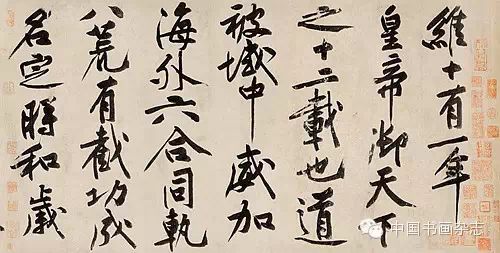 維十有一年
皇帝御天下
之十二載也道
被域中威加
海外六合同軌
八荒有截功成
名定時和歲
中国书画杂志